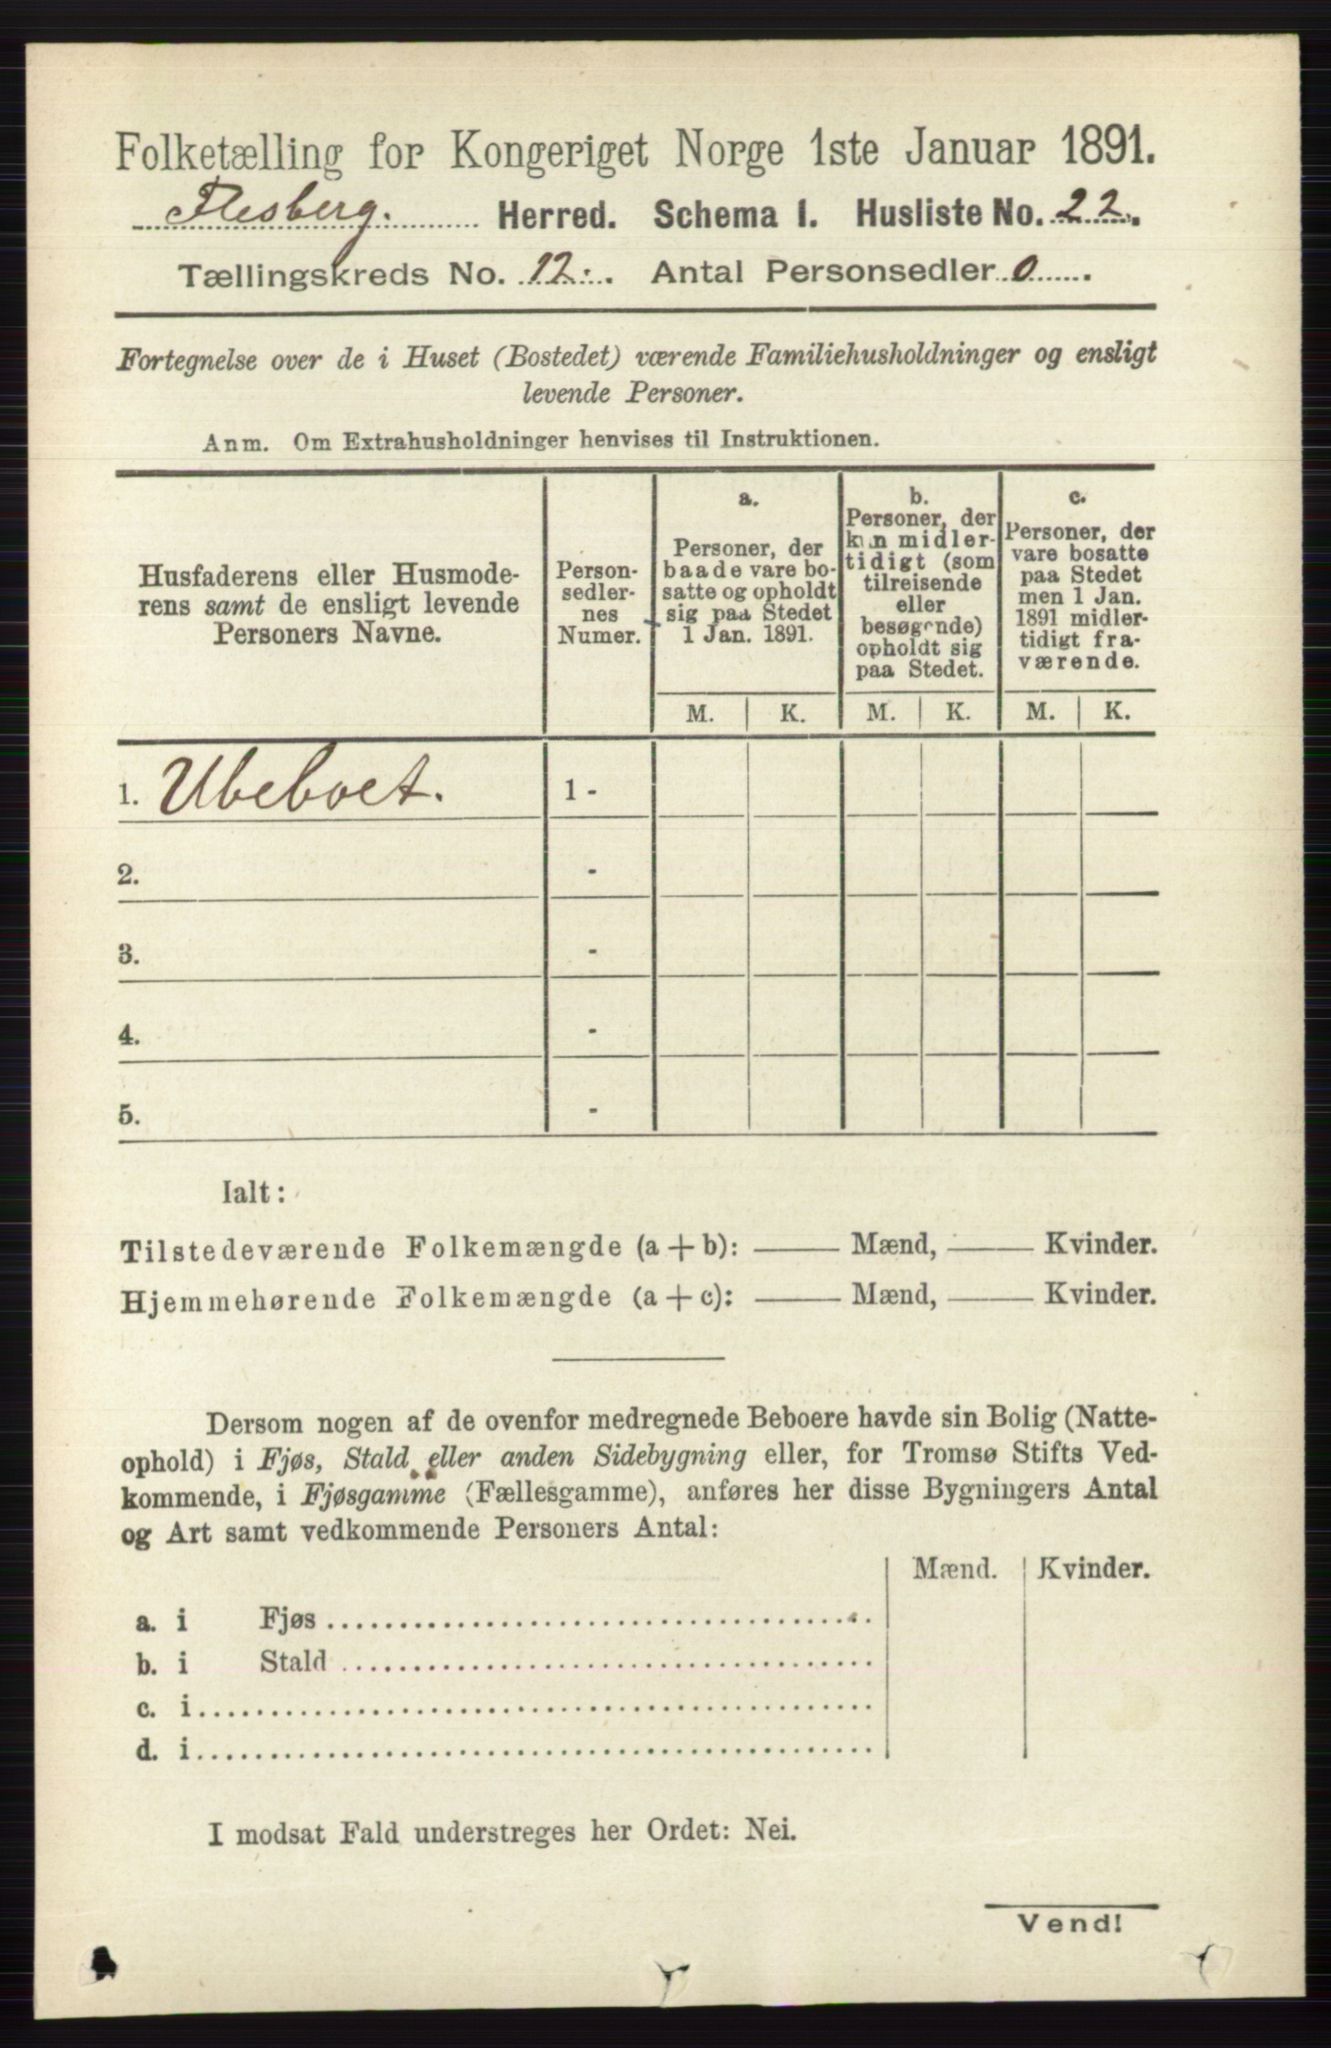 Folketælling for Kongeriget Norge 1ste Januar 1891.
Flesberg. Herred. Schema I. Husliste No. 22.
Tællingskreds No. 12. Antal Personsedler 0.
Fortegnelse over de i Huset (Bostedet) værende Familiehusholdninger og ensligt
levende Personer.
Anm. Om Extrahusholdninger henvises til Instruktionen.
Husfaderens eller Husmode-
rens samt de ensligt levende
Personers Navne.
Person-
sedler-
nes
Numer.
a.
Personer, der
baade vare bo-
satte og opholdt
sig paa Stedet
1 Jan. 1891.
b.
Personer, der
kun midler-
tidigt (som
tilreisende
eller
besøgende)
opholdt sig
paa Stedet.
c.
Personer, der
vare bosatte
paa Stedet
men 1 Jan.
1891 midler-
tidigt fra-
værende.
M. K. M. K. M. K.
1. Ubeboet. 1 -
2. -
3. -
4. -
5. -
Ialt:
Tilstedeværende Folkemængde (a + b): —— Mænd, —— Kvinder.
Hjemmehørende Folkemængde (a + c): —— Mænd, —— Kvinder.
Dersom nogen af de ovenfor medregnede Beboere havde sin Bolig (Natte-
ophold) i Fjøs, Stald eller anden Sidebygning eller, for Tromsø Stifts Ved-
kommende, i Fjøsgamme (Fællesgamme), anføres her disse Bygningers Antal
og Art samt vedkommende Personers Antal:
Mænd. Kvinder.
a. i Fjøs
b. i Stald
c. i
d. i
I modsat Fald understreges her Ordet: Nei.
Vend!